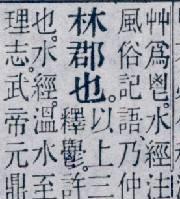 艸爲鬯。水經注
風俗記語。乃仲
林郡也。以上三
釋鬱。許
也。水經。溫水至
理志。武帝元鼎